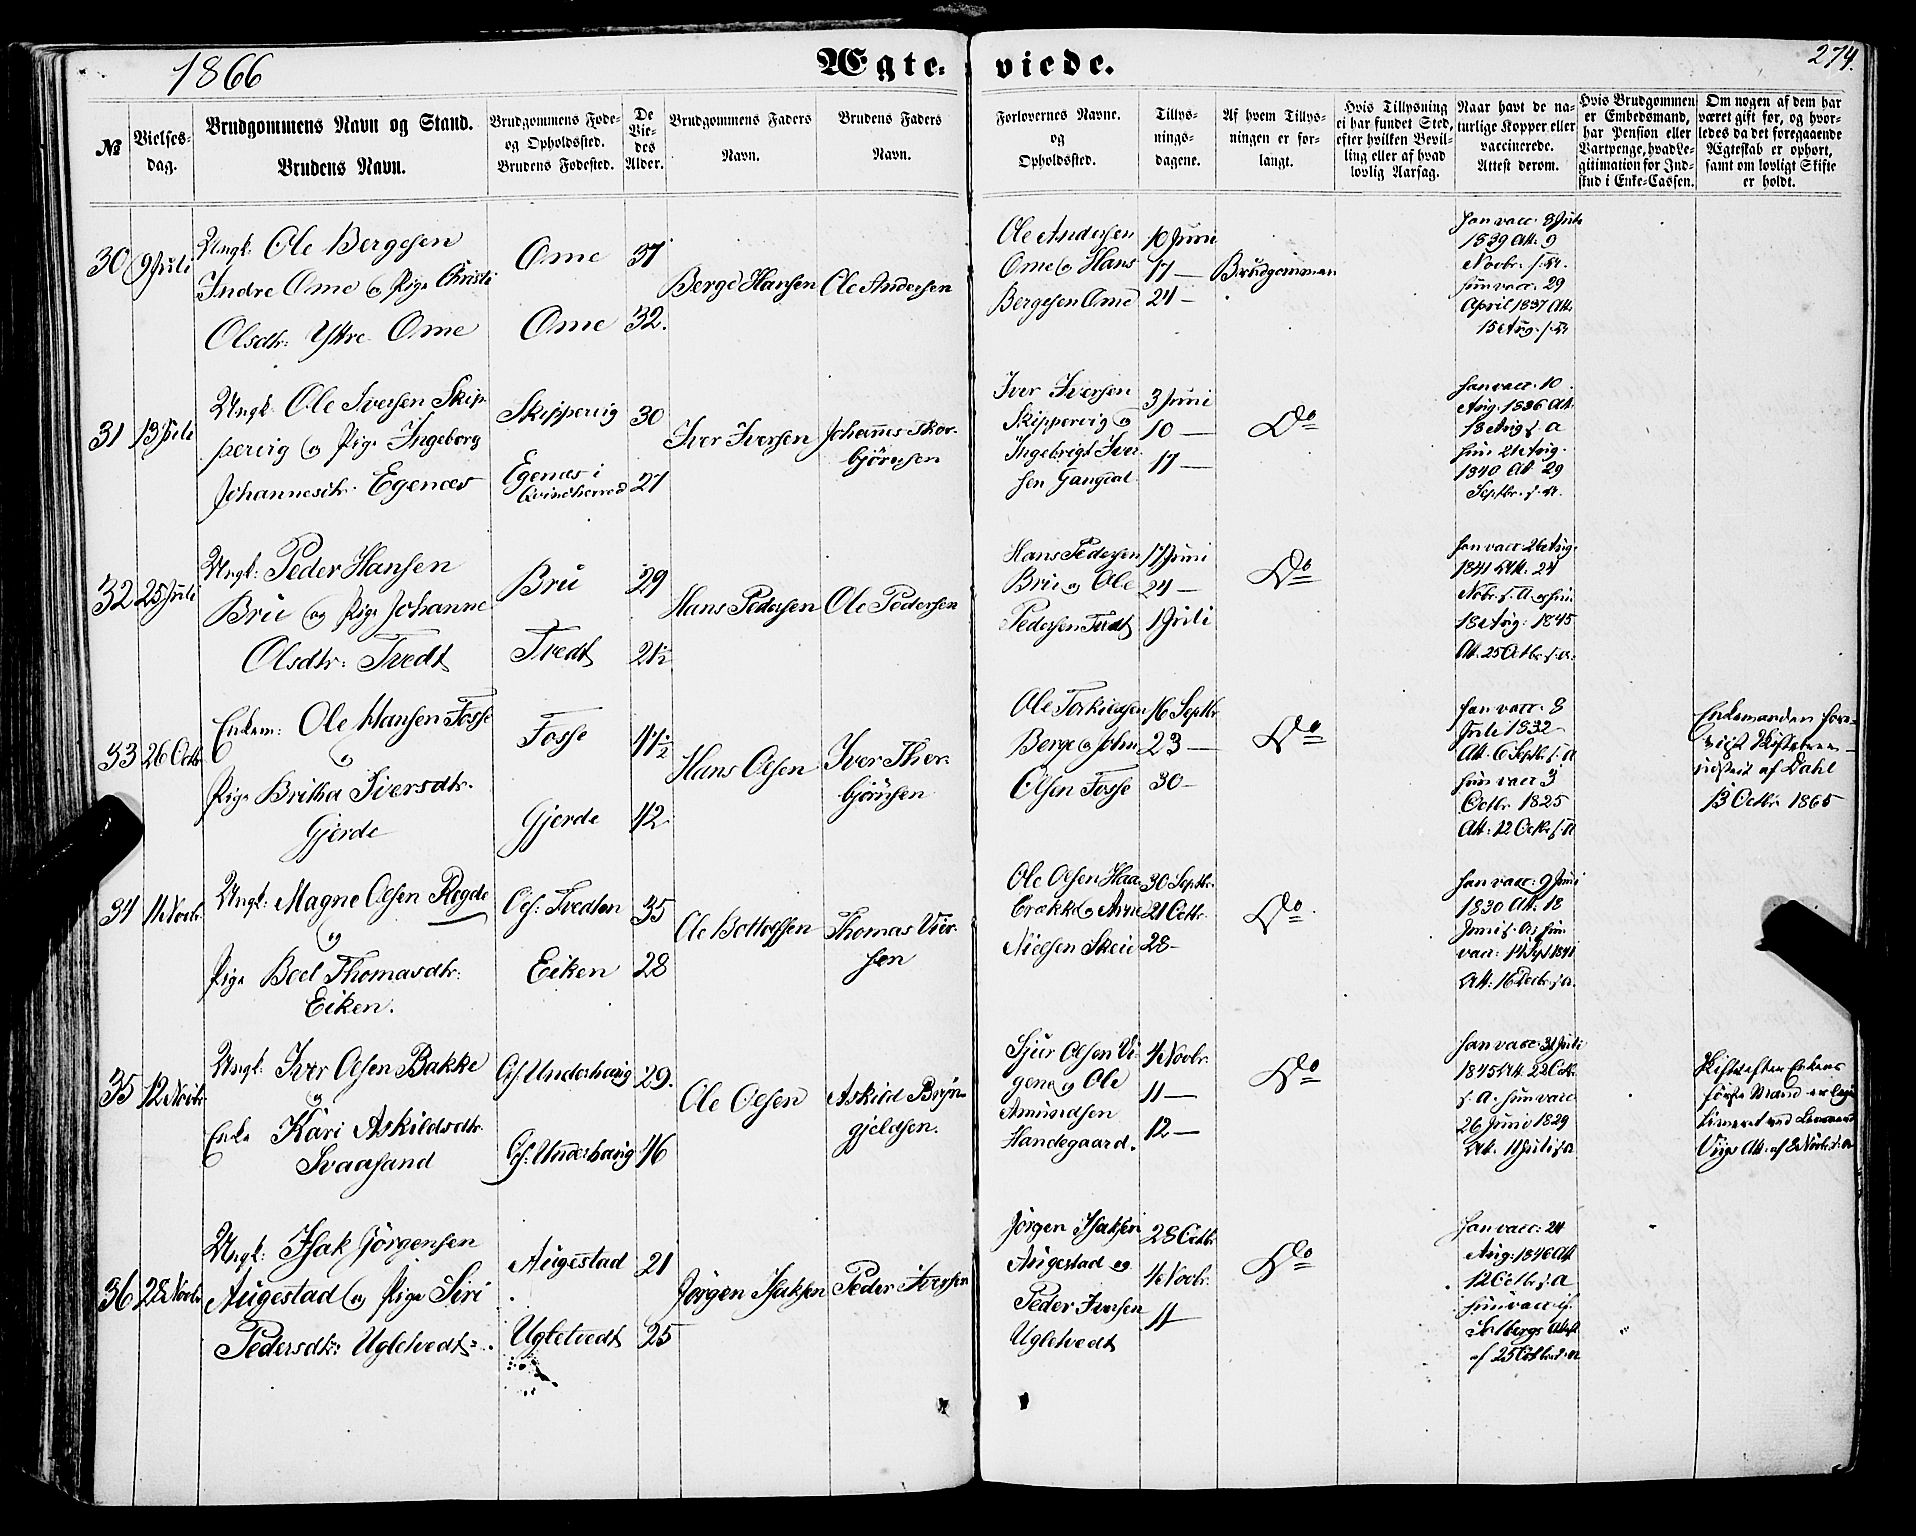 1866
Ægte-viede.
274.
№
Vielses-dag.
Brudgommens Navn og Stand.
Brudens Navn.
Brudgommens Føde- og Opholdssted.
Brudens Fødested.
De Vie-des Alder.
Brudgommens Faders Navn.
Brudens Faders Navn.
Forlovernes Navne. og Opholdssted.
Tillys-nings-dagene.
Af hvem Tillys-ningen er for-langt.
Hvis Tillysning ei har fundet Sted, efter hvilken Bevil-ling eller af hvad lovlig Aarsag.
Naar havt de na-turlige Kopper eller vaccinerede. Attest derom.
Hvis Brudgommen er Embedsmand, har Pension eller Vartpenge, hvad Le-gitimation for Ind-skud i Enke-Cassen.
Om nogen af dem har været gift før, og hvor-ledes da det foregaaende Ægteskab er ophørt, samt om lovligt Skifte er holdt.
30 9 Juli
Ungk: Ole Bergesen
Indre Ome og Pige Christi
Olsdtr: Yttre Ome
Ome 37
Ome 32.
Berge Hansen
Ole Andersen
Ole Andersen
Ome og Hans
Bergesen Ome
10 Juni
17 —
24 —
Brudgommen
han vacc. 8 Juli
1839 Att. 9
Novbr. f. A.
hun vacc. 29
April 1837 Att.
15 Aug. f. A.
31 13 Juli
Ungk. Ole Iversen Skip-
pervig og Pige Ingeborg
Johannesdtr. Egenæs
Skippervig 30
Egenæs i
Qvindherred 27
Iver Iversen
Johannes Thor-
bjørnsen
Iver Iversen
Skippervig og
Ingebrigt Iver-
sen Gangdal
3 Juni
10 —
17 —
Do
han vacc. 10
Aug. 1836 Att.
18 Aug f. a
hun 21 Aug.
1840 Att 29
Septbr. f. A.
32 25 Juli
Ungk: Peder Hansen
Bru og Pige Johanne
Olsdtr: Tvedt
Bru 29
Tvedt 21½
Hans Pedersen
Ole Pedersen
Hans Pedersen
Bru og Ole
Pedersen Tvedt
17 Juni
24 —
1 Juli
Do
han vacc 26 Aug.
1841 Att: 24
Novbr. f. A og hun
18 Aug: 1845
Att. 25 Octbr. f. a.
33 26 Octbr
Enkem: Ole Hansen Fosse
og
Pige Britha Iversdtr.
Gjerde
Fosse 47½
Gjerde 42
Hans Olsen
Iver Thor-
bjørnsen
Ole Torkildsen
Berge og John
Olsen Fosse
16 Septbr
23 —
30 —
Do
han vacc. 8
Juli 1832
Att. 6 Septbr. f. a
hun vacc 3
Octbr. 1825
Att: 12 Octbr. f. a
Enkemanden fore-
af Dahl
13 Octbr. 1865
34 11 Novbr.
Ungk: Magne Olsen Røgde
og
Pige Boel Thomasdtr:
Eiken.
Tvedten 35
Eiken 28
Ole Bottolfsen
Thomas Vier-
sen
Ole Olsen Haa-
brække og Arne
Nielsen Skeie
30 Septbr.
21 Octbr.
28 —
Do
han vacc: 9 Juni
1830 Att. 18
Juni f. A og hun
vacc: 14 Sept 1841
Att: 16 Decbr. f. a.
35 12 Novbr
Ungk: Iver Olsen Bakke
og
Enke Kari Askildsdtr.
Svaasand
Underhaug 29.
Underhaug 46
Ole Olsen
Askild Bryn-
gjeldsen.
Sjur Olsen Vi-
gene og Ole
Amundsen
Handegaard.
4 Novbr.
11 —
12 —
Do
han vacc. 31 Juli
1845 Att. 22 Octbr.
f. a. hun vacc
26 Juni 1829
Att. 11 Juli f. a
Skifte efter Enkens
første Mand er legi-
timeret ved Lensmand
Viigs Att. af 8 Novbr. f. a
36 28 Novbr
Ungk: Isak Jørgensen
Augestad og Pige Siri
Pedersdtr: Ugletvedt
Augestad 21
Ugletvedt 25
Jørgen Isaksen
Peder Iversen
Jørgen Isaksen
Augestad og
Peder Iversen
Ugletvedt
28 Octbr
4 Novbr.
11 —
Do
han vacc: 24
Aug: 1846 Att
12 Octbr. f. a
hun vacc if.
Solbergs Attest
af 25 Octbr. d. a